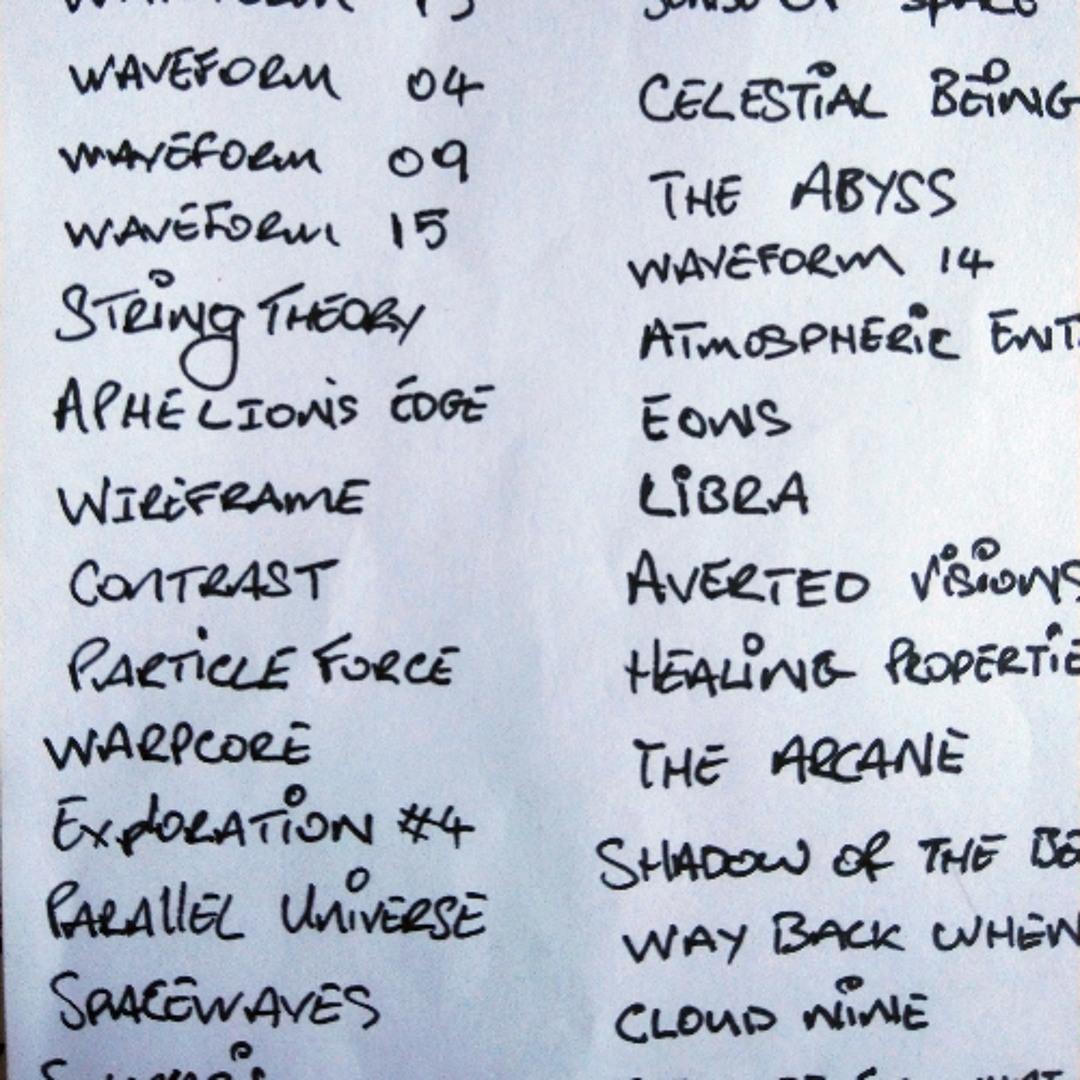 WAVEFORM 04
WAVEFORM 09
WAVEFORM 15
STRING THEORY
APHELION'S EDGE
WIREFRAME
CONTRAST
PARTICLE FORCE
WARPCORE
EXPLORATION #4
PARALLEL UNIVERSE
SPACEWAVES
CELESTIAL BEING
THE ABYSS
WAVEFORM 14
ATMOSPHERIC ENT
EONS
LIBRA
AVERTED VISIONS
HEALING PROPERTIE
THE ARCANE
SHADOW OF THE BE
WAY BACK WHEN
CLOUD NINE